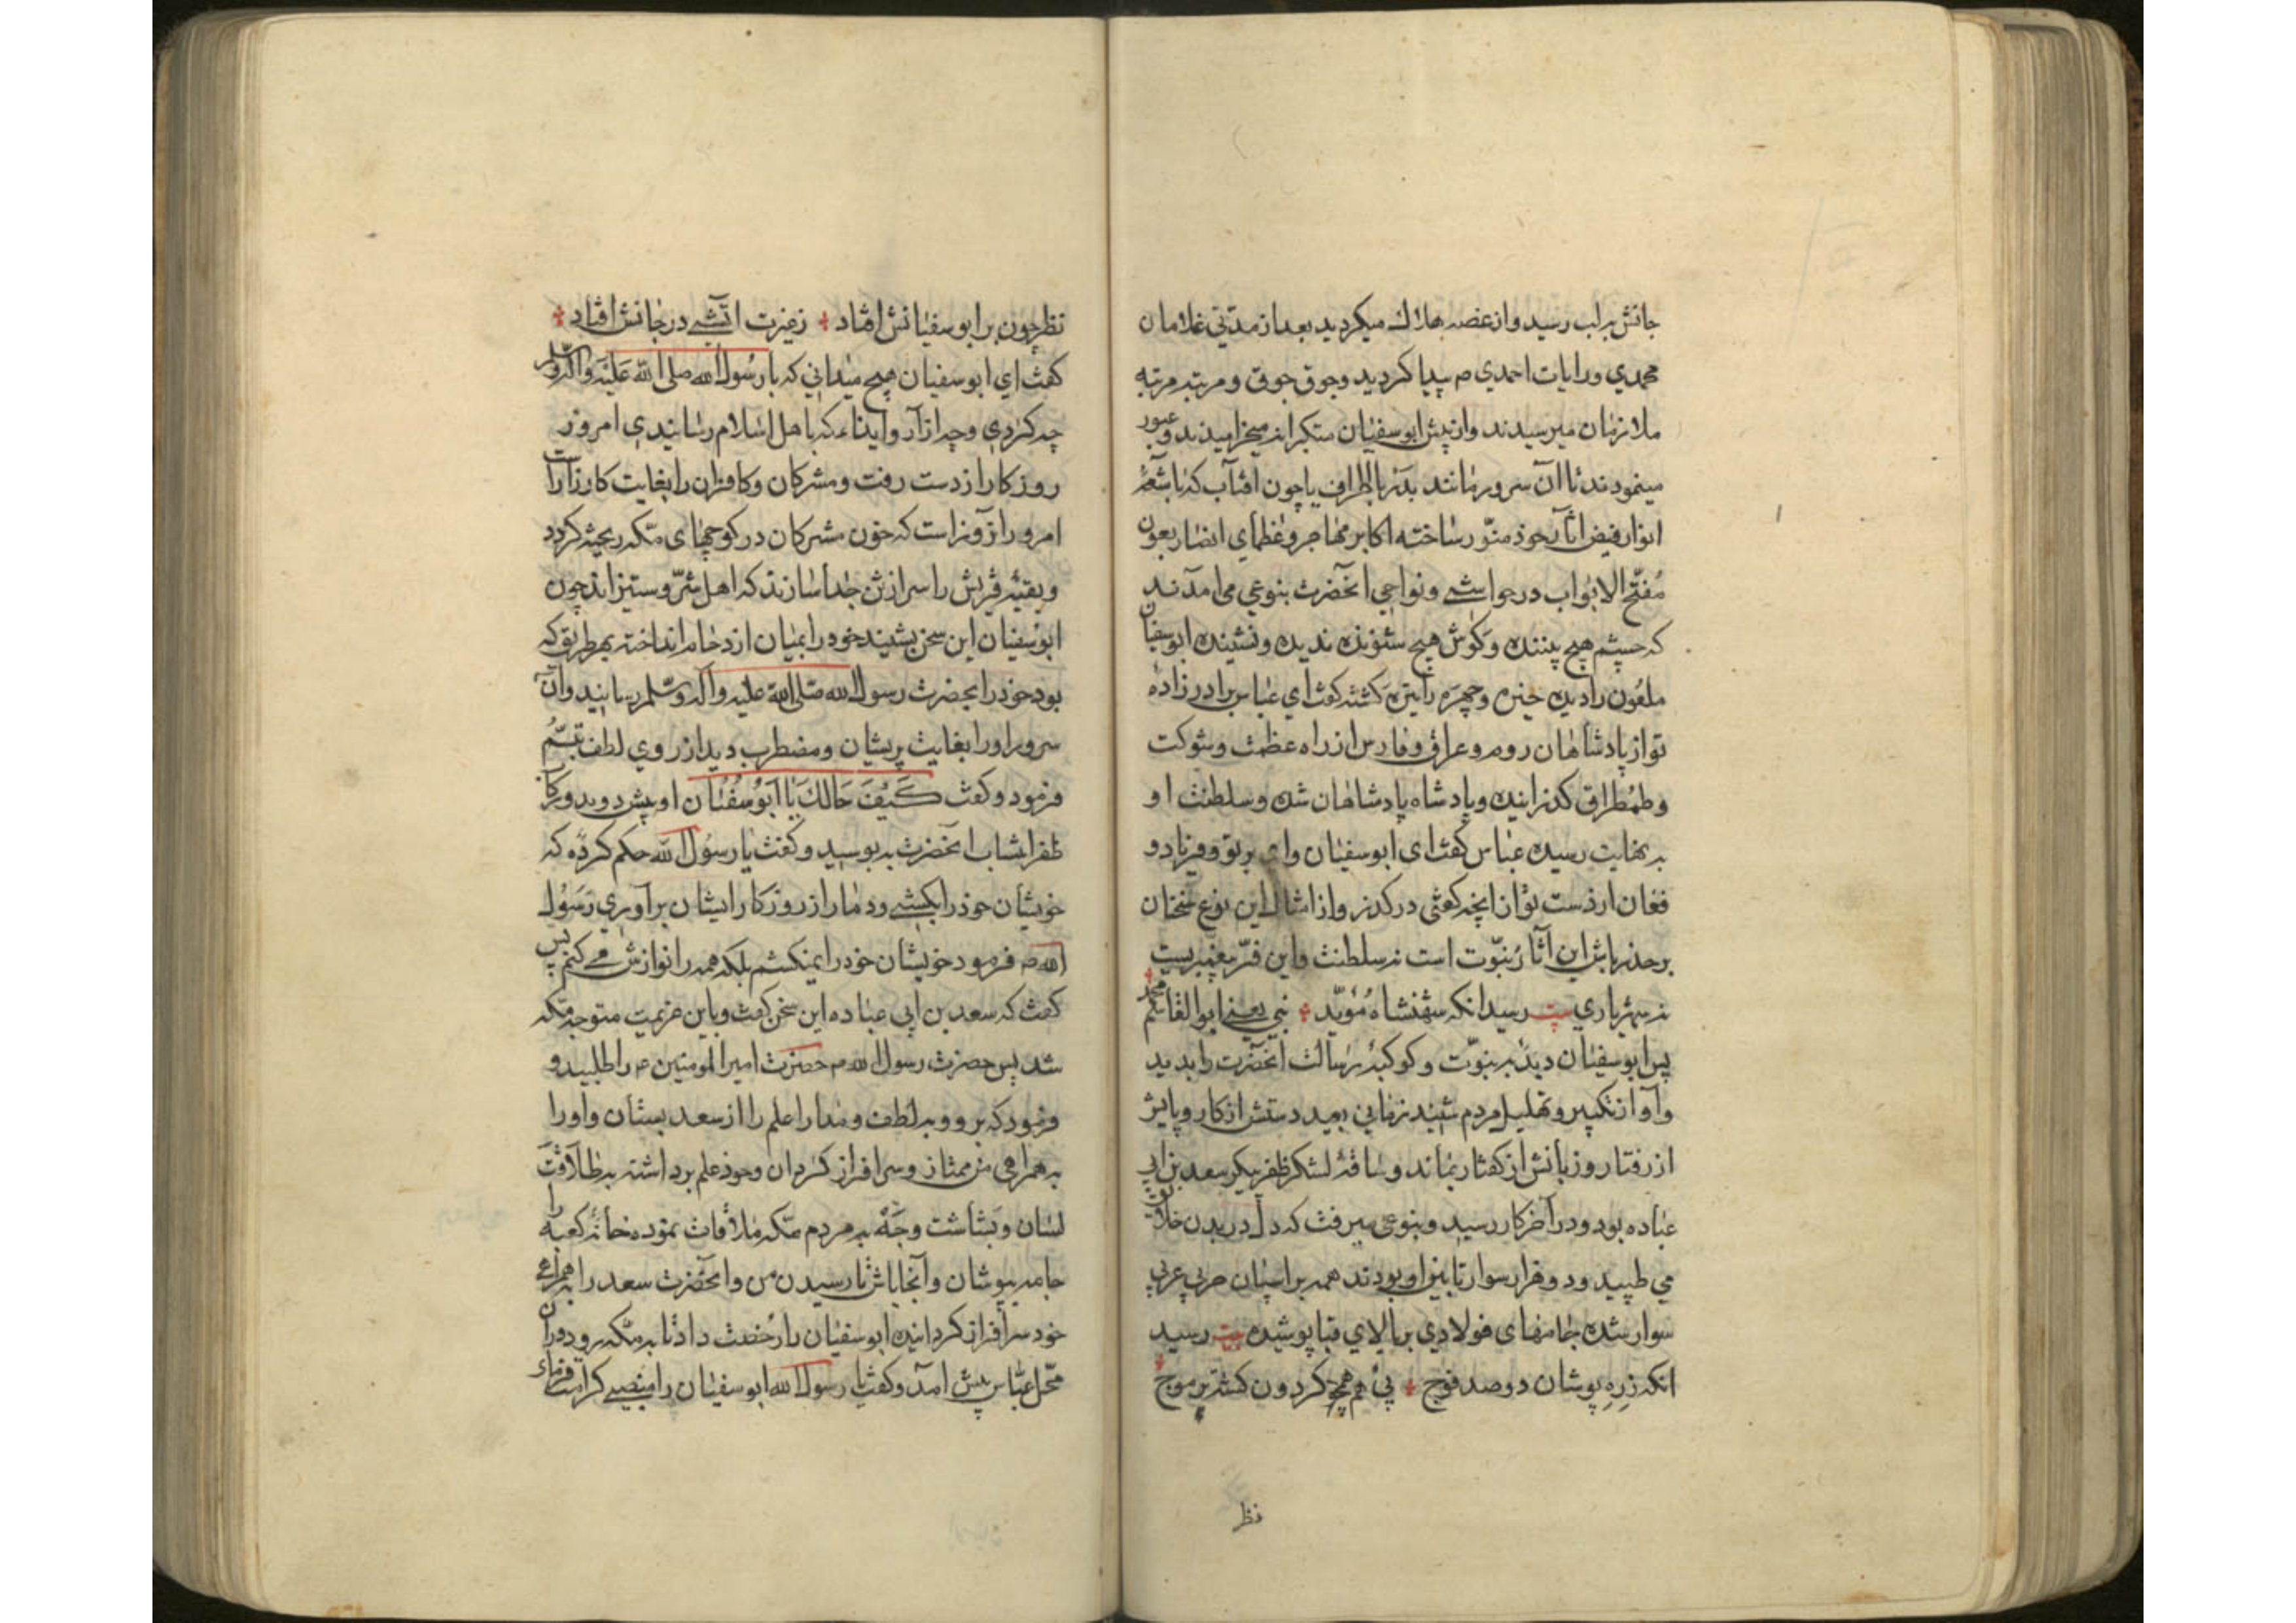 جانش برلب رسید و از غصه هلاک میکردید بعد از مدتی غلامان
محمدی و رایات احمدی م پیدا کردید وجوق جوق و مرتبه مرتبه
ملازمان میرسیدند و از پیش ابوسفیان متکبرانه میخرامیدند و عبور
مینمودند تا آن سرور مانند بدر با اطراف یا چون افتاب که باشعهٔ
انوار فیض اثار خود منور ساخته اکابر مهاجر و عظمای انصار بعون
مفتح الابواب در حواشی و نواحی انحضرت بنوعی می امدند
که چشم هیچ بیننده و کوش هیچ شنونده ندیده و نشینده ابوسفیان
ملعون را دیده خیره و چهره را تیره کشته کفت ای عباس برادرزاده
تو از پادشاهان روم و عراق و فارس از راه عظمت و شوکت
و طمطراق کذرانیده و پادشاه پادشاهان شده و سلطنت او
به نهایت رسیده عباس کفت ای ابوسفیان وای بر تو و فریاد و
فغان از دست تو از انچه کفتی درکذر و از امثال این نوع سخنان
برحذر باش این آثار نبوت است نه سلطنت و این فر پیغمبریست
نه شهریاری بیت رسید انکه شهنشاه موید نبی یعنی ابوالقاسم محمد
پس ابوسفیان دبدبه نبوت و کوکبهٔ رسالت انحضرت را بدید
و آواز تکبیر و تهلیل مردم شنید زمانی بعید دستش از کار و پایش
از رفتار و زبانش از کفتار بماند و ساقهٔ لشکر ظفر پیکر سعد بن ابی
عباده بود و در آخر کار رسید و بنوعی میرفت که دل در بدن خلایق
می طپید و دو هزار سوار تابین او بودند همه بر اسپان حربی عربی
سوار شده جامهای فولادی بر بالای قبا پوشیده بیت رسید
انکه زره پوشان دو صد فوج پی هم همچو کردون کشته بر موج
نظر
نظر چون بر ابوسفیانش افتاد زغیرت اتشی در جانش افتاد
کفت ای ابوسفیان هیچ میدانی که با رسول الله صلی الله علیه واله وسلم
چه کردی و چه ازار و ایذاء که باهل اسلام رسانیدی امروز
روزکار از دست رفت و مشرکان و کافران را بغایت کار زارات
امروز آن روز است که خون مشرکان در کوچهای مکه ریخته کردد
و بقیهٔ قریش را سر از تن جدا سازند که اهل شر و ستیز اند چون
ابوسفیان این سخن بشنید خود را بمیان ازدحام انداخته بهر طریق که
بود خود را بحضرت رسول الله صلی الله علیه واله وسلم رسانید و آن
سرور او را بغایت پریشان و مضطرب دید از روی لطف تبسم
فرمود و کفت کیف حالک یا ابوسفیان او پیش دوید و رکاب
ظفر انتساب انحضرت به بوسید و کفت یا رسول الله حکم کرده که
خویشان خود را بکشی و دمار از روزکار ایشان برآوری رسول
الله م فرمود خویشان خود را نمیکشم بلکه همه را نوازش می کنم پس
کفت که سعد بن ابی عباده این سخن کفت و باین عزیمت متوجه مکه
شد پس حضرت رسول الله م حضرت امیرالمومنین ع را طلبید و
فرمود که برو و به لطف و مدارا علم را از سعد بستان و او را
به همراهی من ممتاز و سرافراز کردان و خود علم برداشته به طلاقت
لسان و بشاشت وجه به مردم مکه ملاقات نموده خانهٔ کعبه را
جامه بپوشان و آنجا باش تا رسیدن من و انحضرت سعد را بهمراهی
خود سرافراز کردانیده ابوسفیان را رخصت داد تا به مکه رود دران
محل عباس پیش آمد و کفت یا رسول الله ابوسفیان را منصبی کرامت فرمای